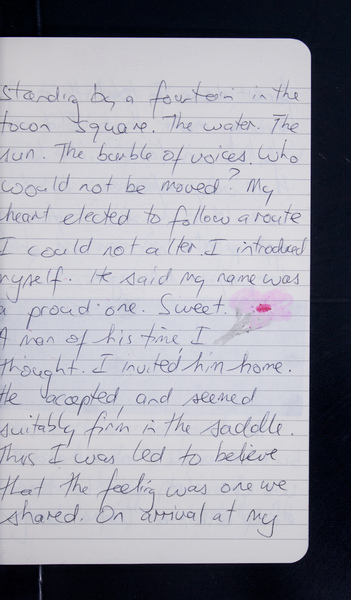 Standing by a fountain in the
town square. The water. The
sun. The burble of voices. Who
would not be moved? My
heart elected to follow a route
I could not alter. I introduced
myself. He said my name was
a proud one. Sweet.
A man of his time, I
thought. I invited him home.
He accepted, and seemed
suitably firm in the saddle.
Thus I was led to believe
that the feeling was one we
shared. On arrival at my